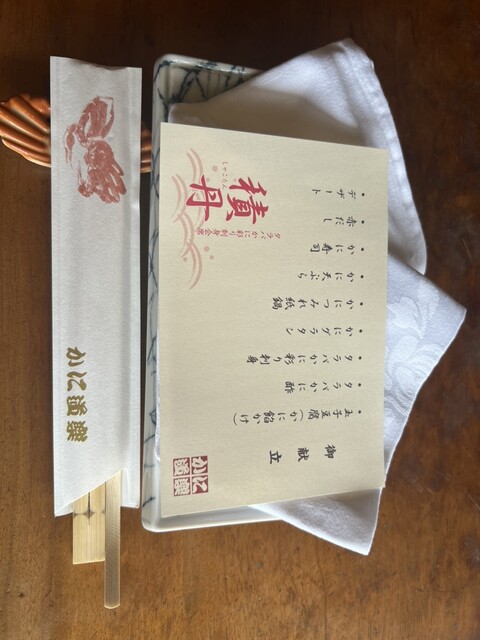 御献立
・玉子豆腐(かに餡かけ)
・タラバかに酢
・タラバかに彩り刺身
・かにグラタン
・かにつみれ紙鍋
・かに天ぷら
・かに寿司
・赤だし
・デザート
積丹
しゃこたん
タラバかに彩り刺身会席
かに道楽
かに道楽